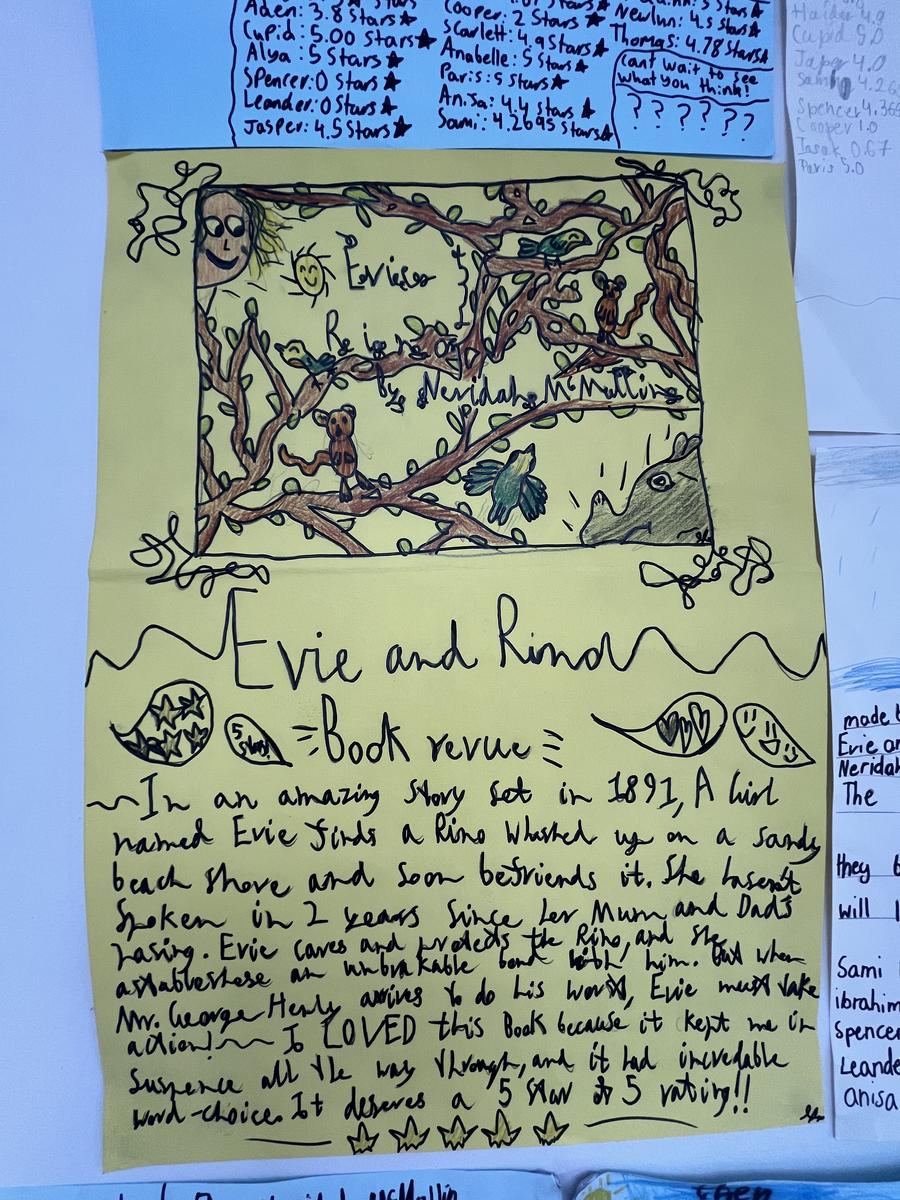 Aden: 3.8 Stars
Cupid: 5.00 Stars
Alya: 5 Stars
Spencer: 0 Stars
Leander: 0 Stars
Jasper: 4.5 Stars
Cooper: 2 Stars
Scarlett: 4.9 Stars
Anabelle: 5 Stars
Paris: 5 Stars
Anisa: 4.4 Stars
Sami: 4.2695 Stars
Newlnn: 4.5 Stars
Thomas: 4.78 Stars
Cant wait to see
what you think!
? ? ? ? ? ?
Haider 4.9
Cupid 5.0
Japer 4.0
Sami 4.26
Spencer 4.366
Cooper 1.0
Isaak 0.67
Paris 5.0
Evie &
Rino
by Neridah McMullin
Evie and Rino
5
Stars!
Book revue
In an amazing story set in 1891, A Girl
named Evie finds a Rino Whashed up on a sandy
beach shore and soon befriends it. She hasen't
Spoken in 2 years since her Mum and Dad's
Evie cares and protects the Rino, and she
astablashese an unbrakable bond with him. But when
Mr. George Henly arrives to do his worst, Evie must take
action! I LOVED this Book because it kept me in
suspence all the way through, and it had incredable
word-choice. It deserves a 5 star of 5 rating!!
made
Evie
Neridah
The
they
will
Sami
ibrahim
Spencer
Leande
anisa
McMullin